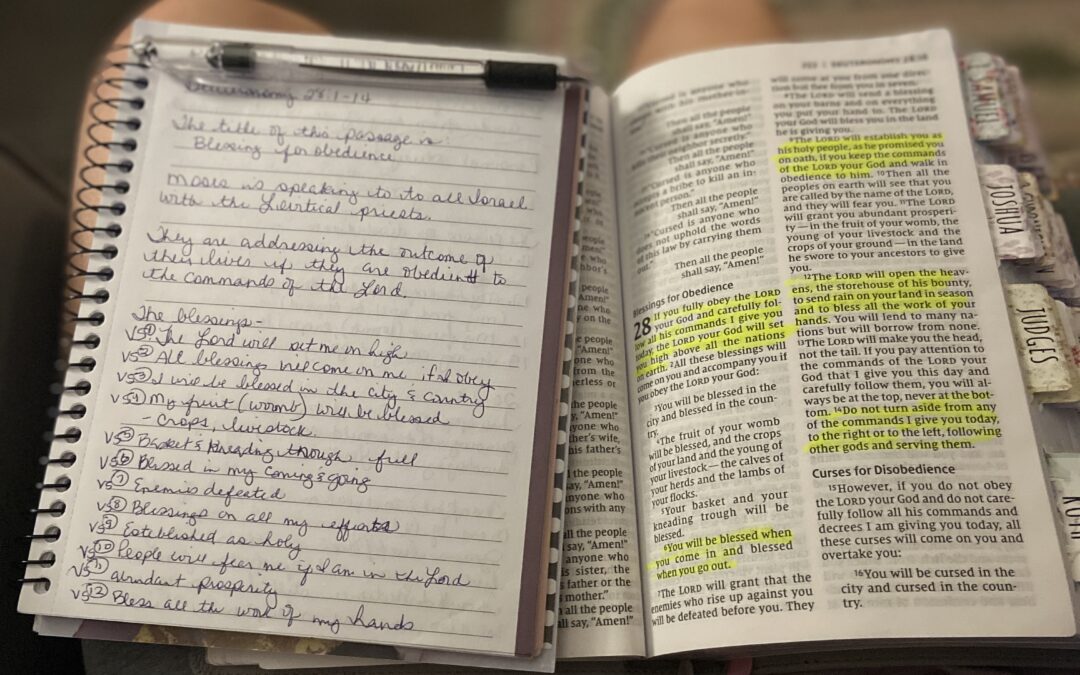 Deuteronomy 28:1-14
The title of this passage is
Blessing for obedience
Moses is speaking to to all Israel
with the Levitical priests.
They are addressing the outcome of
their lives if they are obedient to
the commands of the Lord.
The blessings -
vs① The Lord will set me on high
vs② All blessings will come on me if I obey
vs③ I will be blessed in the city & country
vs④ My fruit (womb) will be blessed
- Crops, livestock.
vs⑤ Basket & kneading through full
vs⑥ Blessed in my coming & going
vs⑦ Enemies defeated
vs⑧ Blessings on all my efforts
vs⑨ Established as holy
vs⑩ People will fear me if I am in the Lord
vs⑪ abundant prosperity
vs⑫ Bless all the work of my hands
Then all the people
shall say, "Amen!"
"Cursed is anyone who
neighbor secretly."
Then all the people
shall say, "Amen!"
"Cursed is anyone who
a bribe to kill an in-
person."
Then all the people
shall say, "Amen!"
"Cursed is anyone who
does not uphold the words
of this law by carrying them
out."
Then all the people
shall say, "Amen!"
Blessings for Obedience
28 If you fully obey the LORD
your God and carefully fol-
low all his commands I give you
today, the LORD your God will set
you high above all the nations
on earth. ²All these blessings will
come on you and accompany you if
you obey the LORD your God:
³You will be blessed in the
city and blessed in the coun-
try.
⁴The fruit of your womb
will be blessed, and the crops
of your land and the young of
your livestock — the calves of
your herds and the lambs of
your flocks.
⁵Your basket and your
kneading trough will be
blessed.
⁶You will be blessed when
you come in and blessed
when you go out.
⁷The LORD will grant that the
enemies who rise up against you
will be defeated before you. They
will come at you from one direc-
tion but flee from you in seven.
⁸The LORD will send a blessing
on your barns and on everything
you put your hand to. The LORD
your God will bless you in the land
he is giving you.
⁹The LORD will establish you as
his holy people, as he promised you
on oath, if you keep the commands
of the LORD your God and walk in
obedience to him. ¹⁰Then all the
peoples on earth will see that you
are called by the name of the LORD,
and they will fear you. ¹¹The LORD
will grant you abundant prosperi-
ty — in the fruit of your womb, the
young of your livestock and the
crops of your ground — in the land
he swore to your ancestors to give
you.
¹²The LORD will open the heav-
ens, the storehouse of his bounty,
to send rain on your land in season
and to bless all the work of your
hands. You will lend to many na-
tions but will borrow from none.
¹³The LORD will make you the head,
not the tail. If you pay attention to
the commands of the LORD your
God that I give you this day and
carefully follow them, you will al-
ways be at the top, never at the bot-
tom. ¹⁴Do not turn aside from any
of the commands I give you today,
to the right or to the left, following
other gods and serving them.
Curses for Disobedience
¹⁵However, if you do not obey
the LORD your God and do not care-
fully follow all his commands and
decrees I am giving you today, all
these curses will come on you and
overtake you:
¹⁶You will be cursed in the
city and cursed in the coun-
try.
JOSHUA
JUDGES
RUTH